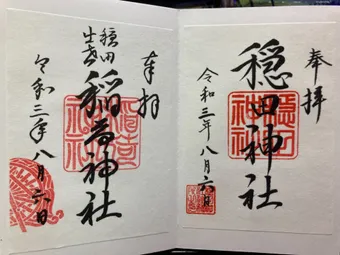 奉拝
穏田神社
令和三年八月六日
奉拝
稲荷神社
穏田
令和三年八月六日